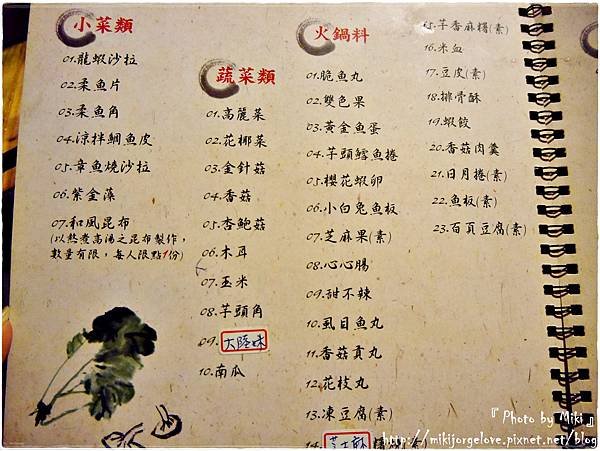 小菜類
01.龍蝦沙拉
02.柔魚片
03.柔魚角
04.涼拌鯛魚皮
05.章魚燒沙拉
06.紫金藻
07.和風昆布
(以熬煮高湯之昆布製作,
數量有限,每人限點1份)
蔬菜類
01.高麗菜
02.花椰菜
03.金針菇
04.香菇
05.杏鮑菇
06.木耳
07.玉米
08.芋頭角
09.大陸妹
10.南瓜
火鍋料
01.脆魚丸
02.雙色果
03.黃金魚蛋
04.芋頭鱈魚捲
05.櫻花蝦卵
06.小白兔魚板
07.芝麻果(素)
08.心心腸
09.甜不辣
10.虱目魚丸
11.香菇貢丸
12.花枝丸
13.凍豆腐(素)
14.
15.芋香麻糬(素)
16.米血
17.豆皮(素)
18.排骨酥
19.蝦餃
20.香菇肉羹
21.日月捲(素)
22.魚板(素)
23.百頁豆腐(素)
『 Photo by Miki 』
http://mikijorgelove.pixnet.net/blog